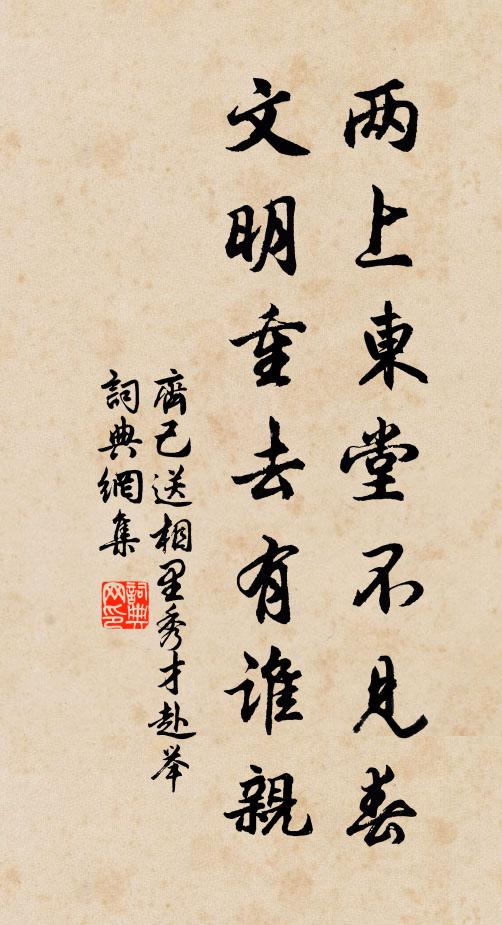 两上東堂不見春
文明重去有誰親
齊己送相里秀才赴举
詞典網集
詞典
网印